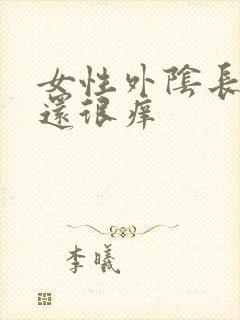 女性外陰長
還很痒
李曦